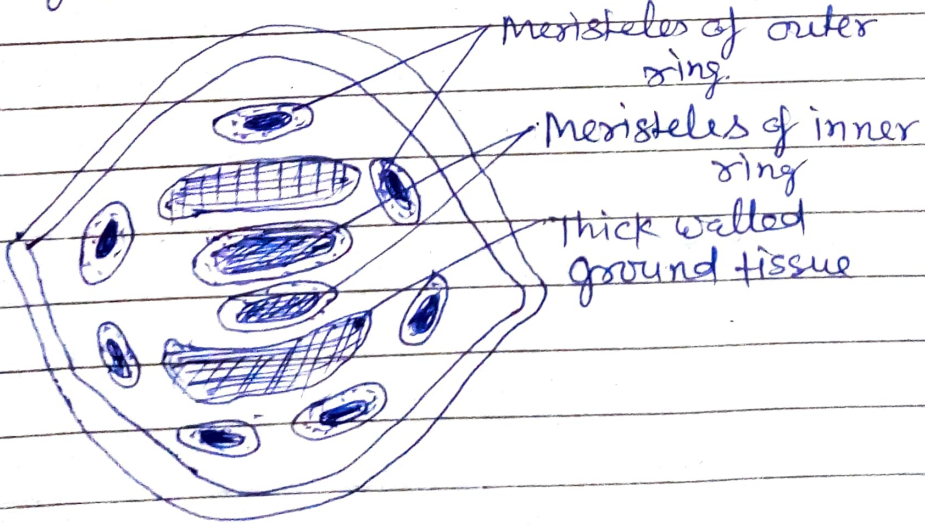 Meristeles of outer
ring.
Meristeles of inner
ring
Thick walled
ground tissue